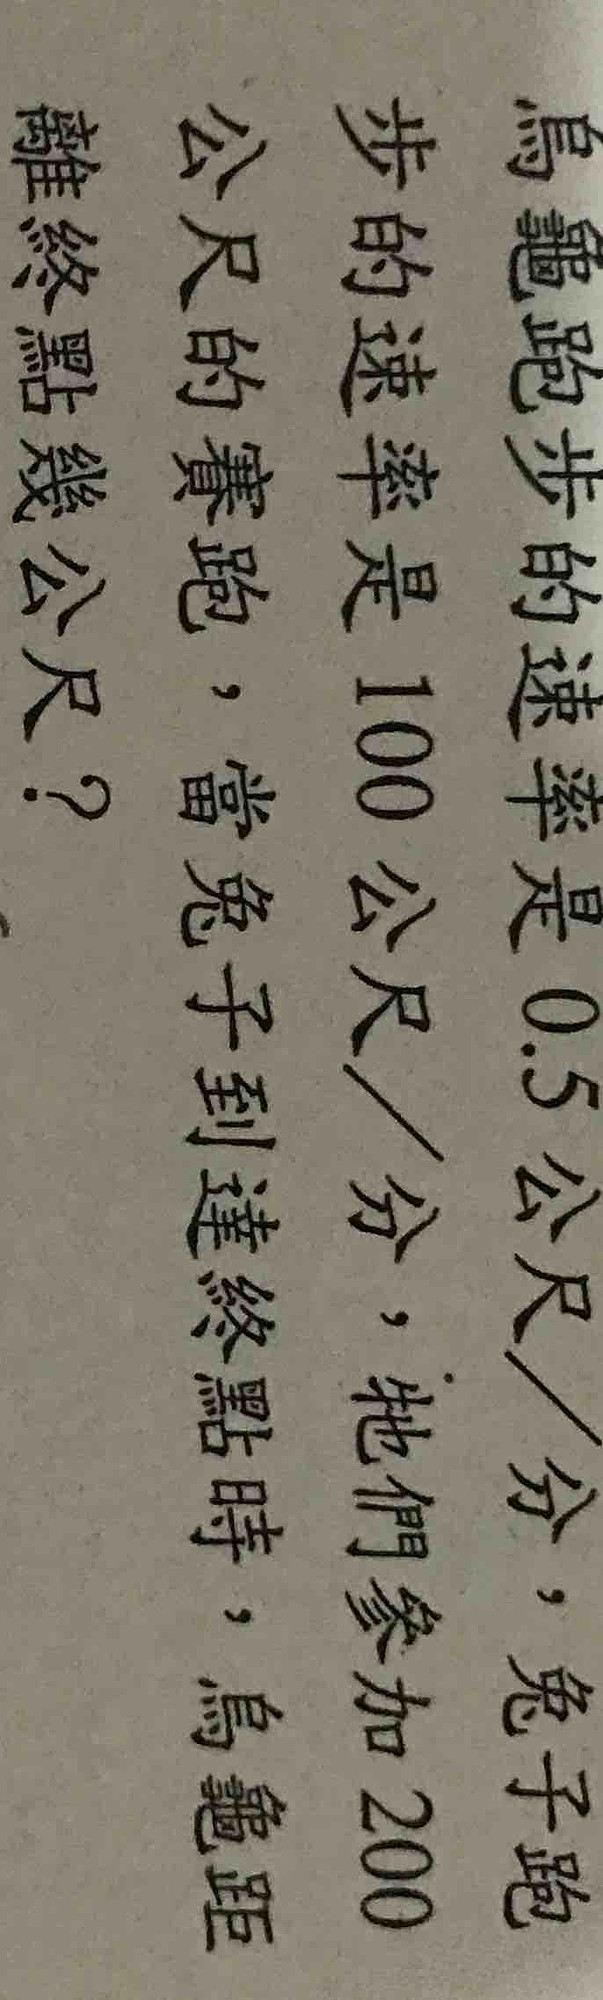 烏龜跑步的速率是 0.5 公尺／分，兔子跑
步的速率是 100 公尺／分，牠們參加 200
公尺的賽跑，當兔子到達終點時，烏龜距
離終點幾公尺？